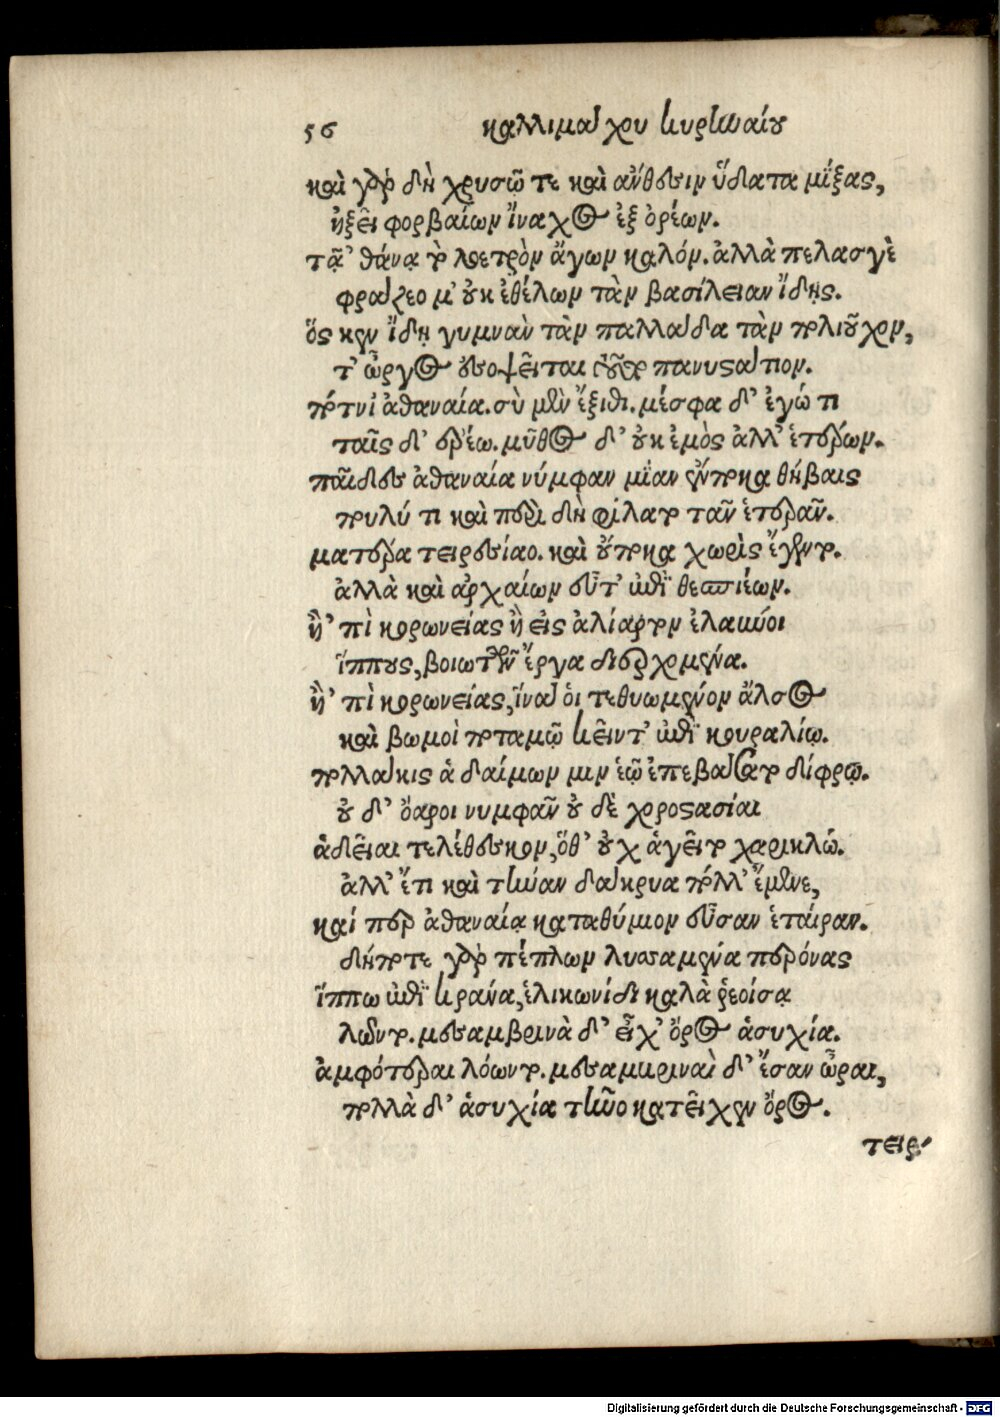 56 καλλιμάχου κυρηναίου
καὶ γὰρ δὴ χρυσῶ τε καὶ ἄνθεσιν ὕδατα μίξας,
ἡξεῖ φορβαίων ἴναχος ἐξ ὀρέων.
τᾷ' θάνᾳ τὸ λοετρὸν ἄγων καλόν. ἀλλὰ πελασγὲ
φράζεο μ' οὐκ ἐθέλων τὰν βασίλειαν ἴδῃς.
ὅς κεν ἴδῃ γυμνὰν τὰν παλλάδα τὰν πολιοῦχον,
τ' ὦργος ἐσοψεῖται τοῦτο πανυστάτιον.
πότνι' ἀθαναία. σὺ μὲν ἔξιθι. μέσφα δ' ἐγώ τι
ταῖς δ' ἐρέω. μῦθος δ' οὐκ ἐμὸς ἀλλ' ἑτέρων.
παῖδες ἀθαναία νύμφαν μίαν ἔν ποκα θήβαις
πουλύ τι καὶ πέρι δὴ φίλατο τᾶν ἑτερᾶν.
ματέρα τειρεσίαο. καὶ οὔποκα χωρὶς ἔγεντο.
ἀλλὰ καὶ ἀρχαίων εὖτ' ἐπὶ θεσπιέων.
ἢ' πὶ κορωνείας ἢ εἰς ἁλίαρτον ἐλαύνοι
ἵππους, βοιωτῶν ἔργα διερχομένα.
ἢ' πὶ κορωνείας, ἵνα οἱ τεθυωμένον ἄλσος
καὶ βωμοὶ ποταμῷ κεῖντ' ἐπὶ κουραλίῳ.
πολλάκις ἁ δαίμων μιν ἑῷ ἐπεβάσατο δίφρῳ.
οὐ δ' ὄαροι νυμφᾶν οὐ δὲ χοροστασίαι
ἁδεῖαι τελέθεσκον, ὅθ' οὐχ ἁγεῖτο χαρικλώ.
ἀλλ' ἔτι καὶ τήναν δάκρυα πόλλ' ἔμενε,
καί περ ἀθαναίᾳ καταθύμιον εὖσαν ἑταίραν.
δήποτε γὰρ πέπλων λυσαμένα περόνας
ἵππω ἐπὶ κράνᾳ, ἑλικωνίδι καλὰ ῥεοίσᾳ
λῶντο. μεσαμβρινὰ δ' εἶχ' ὄρος ἁσυχία.
ἀμφότεραι λόωντο. μεσαμεριναὶ δ' ἔσαν ὧραι,
πολλὰ δ' ἁσυχία τῆνο κατεῖχεν ὄρος.
τειρ'
Digitalisierung gefördert durch die Deutsche Forschungsgemeinschaft - DFG